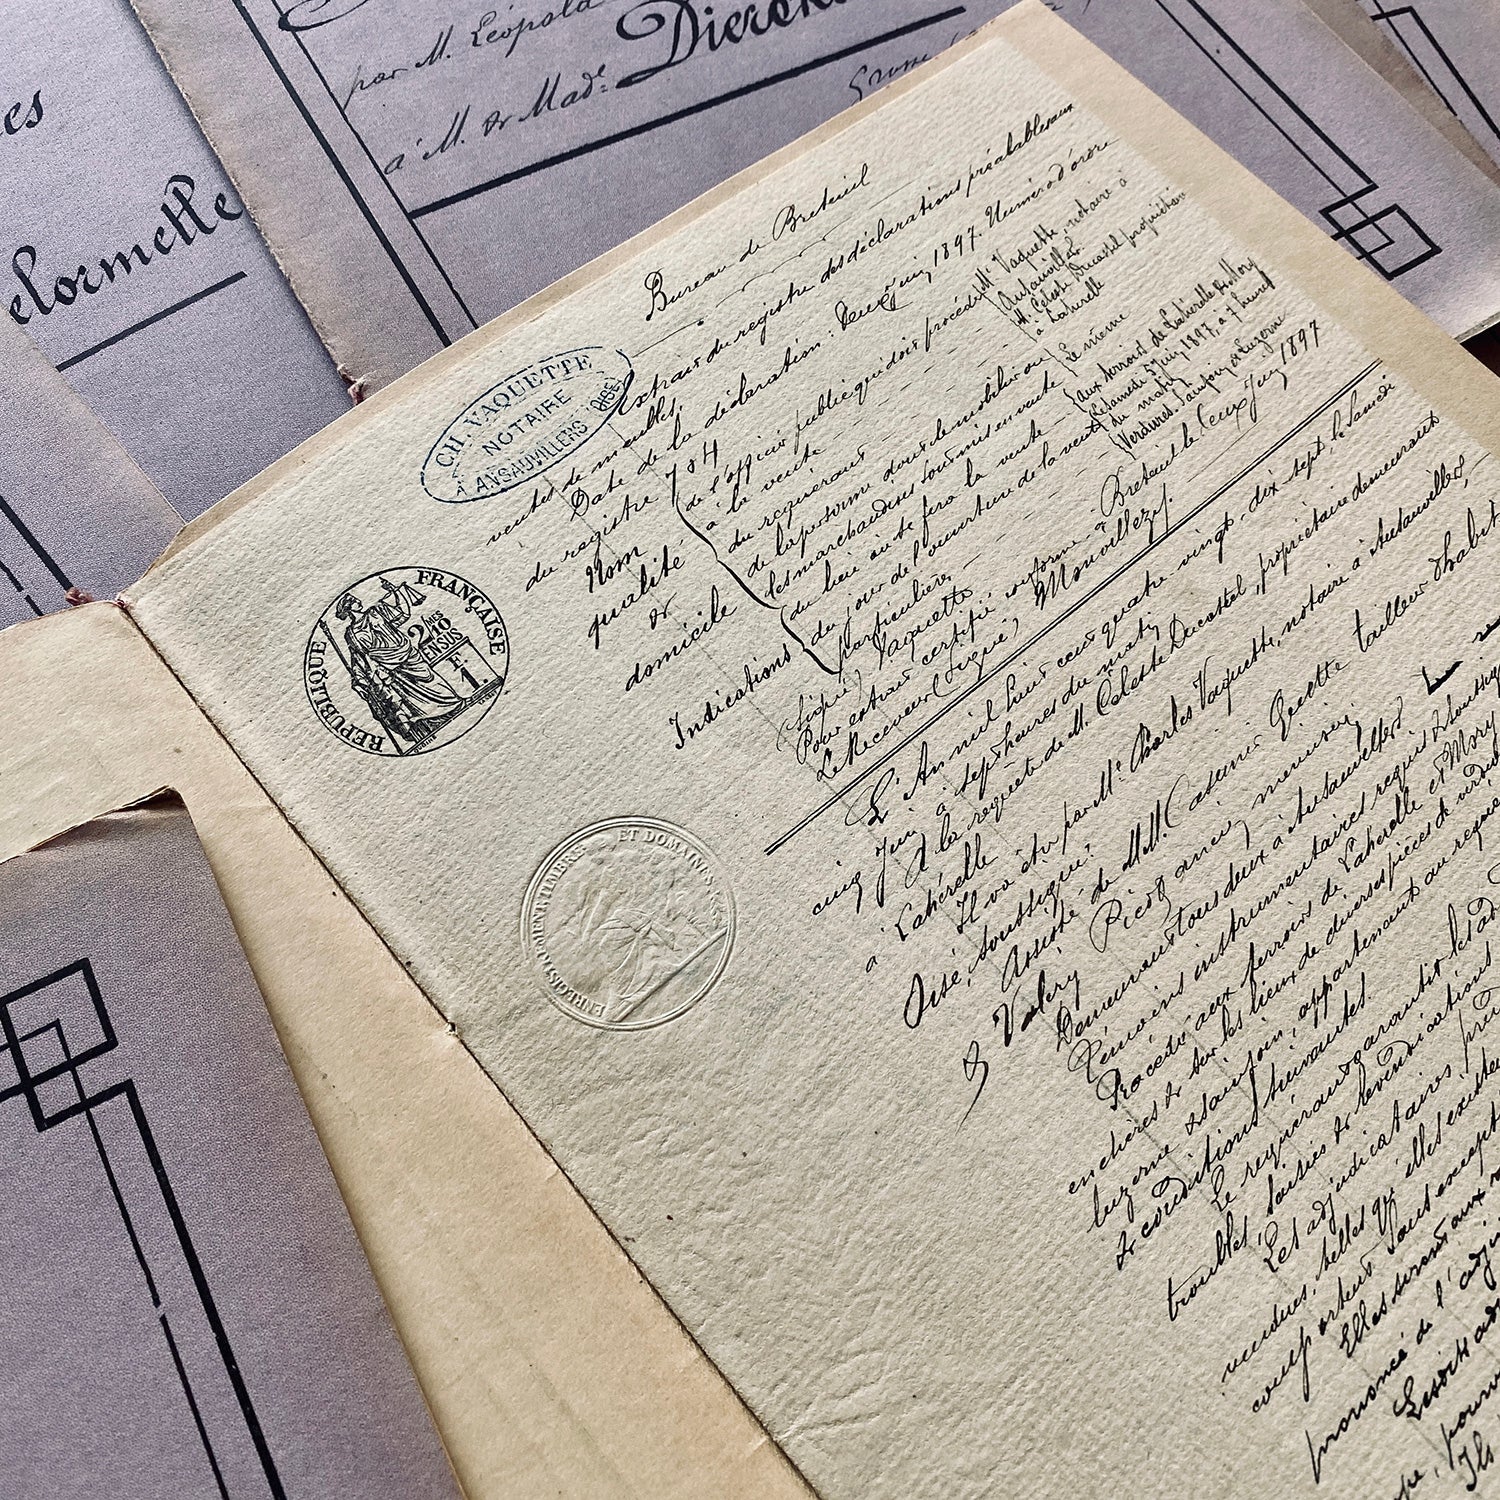 es
elormette
par M. Léopold
à M. & Made. Dierck
Bureau de Breteuil
Extrait du registre des déclarations préalables aux
ventes de meubles.
Date de la déclaration: deux juin 1897. Numéro d'ordre
du registre 784
Nom
qualité
&
domicile
de l'officier public qui doit procéder
à la vente
Me Vaquette, notaire à
Ansauvillers
du requérant
M. Céleste Ducastel propriétaire
à Lahérelle
de la personne dont le mobilier ou
les marchandises sont mis en vente
Le même
Indications
du lieu où se fera la vente
aux terroirs de Lahérelle & Mory
du jour de l'ouverture de la vente
Le samedi 5 Juin 1897, à 7 heures
du matin
particulières
Verdures, Sainfoin & Luzerne
(Signé) Vaquette
Pour extrait certifié conforme à Breteuil le deux Juin 1897
Le Receveur (Signé) 
CH. VAQUETTE
NOTAIRE
A ANSAUVILLERS (OISE)
REPUBLIQUE FRANÇAISE
2/10
EN SUS
F.
1.
ENREGISTREMENT TIMBRE ET DOMAINES
L'An mil huit cent quatre vingt-dix sept, le Samedi
cinq Juin à sept heures du matin
A la requête de M. Céleste Ducastel, propriétaire demeurant
à Lahérelle
Il va être par Me Charles Vaquette, notaire à Ansauvillers,
Oise, soussigné.
Assisté de MM. Casimir tailleur d'habit
& Valéry menuisier
Demeurant tous deux à Ansauvillers
Témoins instrumentaires requis & soussig
Procédé aux terroirs de Lahérelle et Mory
enchères & sur les lieux de diverses pièces de verdu
luzerne & sainfoin, appartenant au requé
& conditions suivantes.
Le requérant garantit les ad
troubles, saisies & revendications
Les adjudicataires
vendues, telles qu'elles existen
comportent sans except
Elles seront aux
prononcé de l'adju
Lesdits ad
pour
Ils